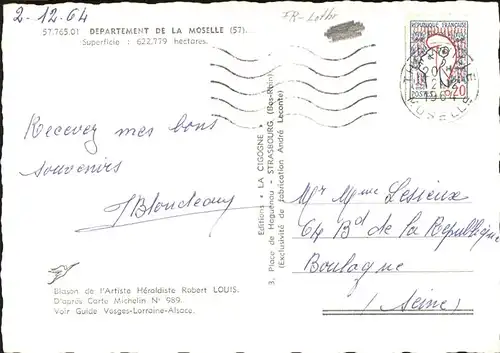 2.12.64
FR-Lothr
57.765.01 DEPARTEMENT DE LA MOSELLE (57)...
Superficie : 622,779 hectares.
RÉPUBLIQUE FRANÇAISE
POSTES 0,20
THIONVILLE
20 H
2-12
1964
MOSELLE
Recevez mes bons
souvenirs
JBlondeau
Editions " LA CIGOGNE "
3, Place de Haguenau - STRASBOURG (Bas-Rhin)
(Exclusivité de fabrication André Leconte)
Mr Mme Lesieux
64 Bd de la République
Boulogne
(Seine)
Blason de l'Artiste Héraldiste Robert LOUIS.
D'après Carte Michelin N° 989.
Voir Guide Vosges-Lorraine-Alsace.